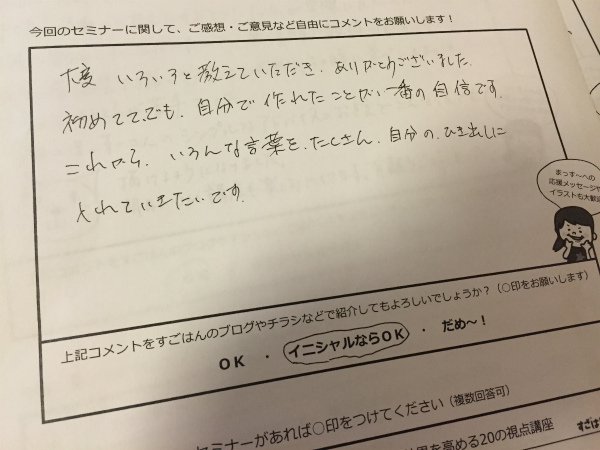 今回のセミナーに関して、ご感想・ご意見など自由にコメントをお願いします！
大変 いろいろと教えていただき、ありがとうございました。
初めてでも、自分で作れたことが一番の自信です。
これから、いろんな言葉を、たくさん、自分の、ひき出しに
入れていきたいです。
まっす～への
応援メッセージや
イラストも大歓迎
上記コメントをすごはんのブログやチラシなどで紹介してもよろしいでしょうか？（○印をお願いします）
OK ・ イニシャルならOK ・ だめ～！
セミナーがあれば○印をつけてください（複数回答可）
を高める20の視点講座 すごは